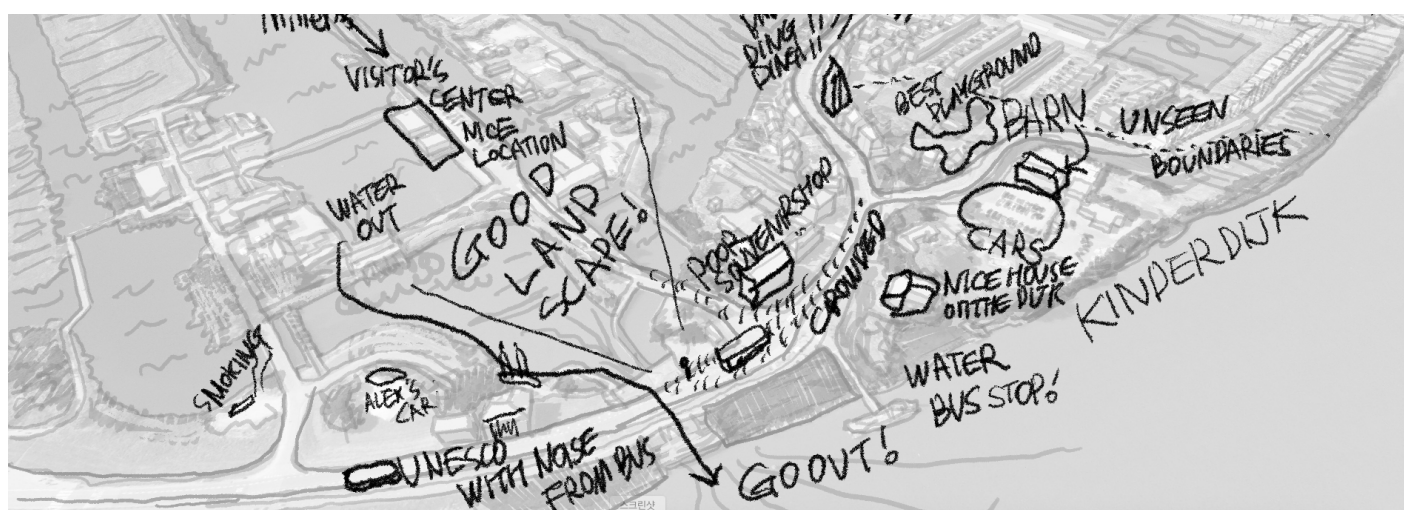 VISITOR'S
CENTER
NICE
LOCATION
DING
DING!!
BEST
PLAYGROUND
BARN
UNSEEN
BOUNDARIES
WATER
OUT
GOOD
LAND
SCAPE!
POOR
SOUVENIRSHOP
CROWDED
CARS
NICE HOUSE
ON THE DIJK
KINDERDIJK
SMOKING
ALEX'S
CAR
WATER
BUS STOP!
UNESCO
WITH NOISE
FROM BUS
GO OUT!
스크린샷